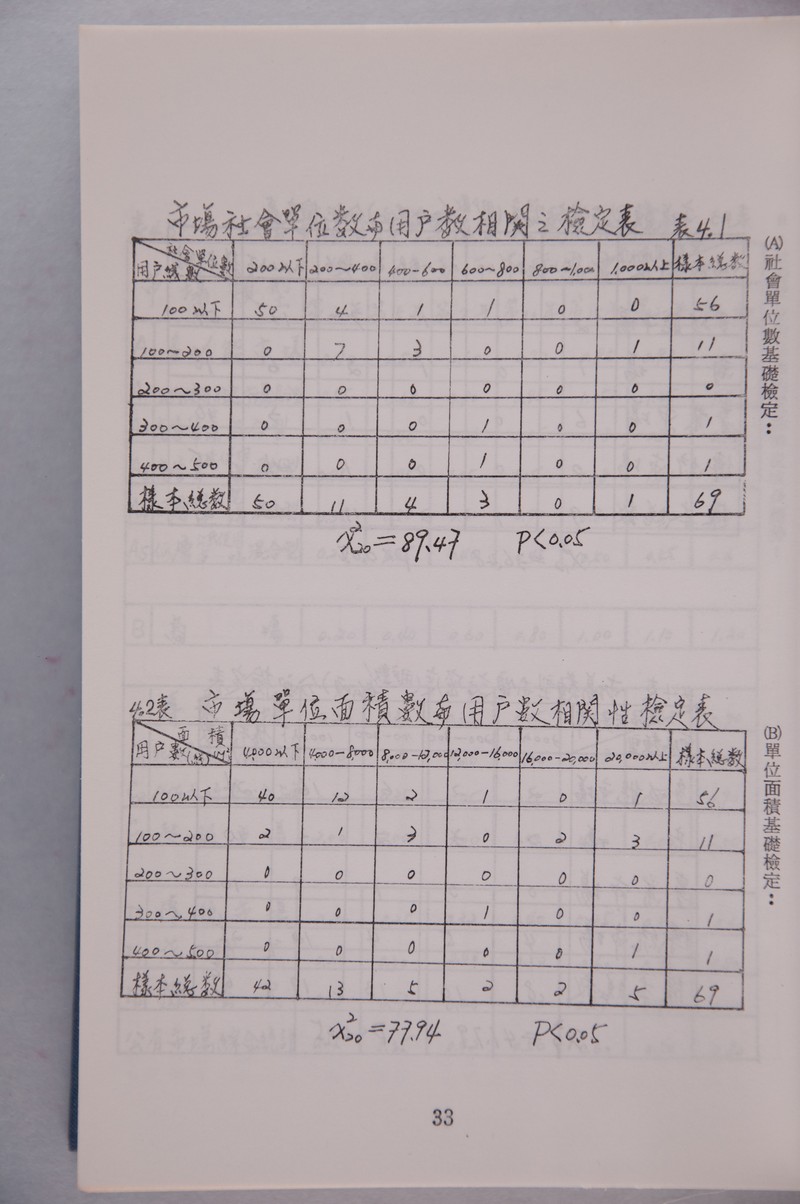 (A)社會單位數基礎檢定：
市場社會單位数與用户数相関之檢定表 表4.1
社會單位數 用户线數 200以下 200~400 400-600 600~800 800~1,000 1,000以上 樣本總數
100以下 50 4 1 1 0 0 56
100~200 0 7 3 0 0 1 11
200~300 0 0 0 0 0 0 0
300~400 0 0 0 1 0 0 1
400~500 0 0 0 1 0 0 1
樣本總数 50 11 4 3 0 1 69
x²20=89.47 P<0.05
(B)單位面積基礎檢定：
4.2表 市場單位面積數與用户數相関性檢定表
面積 用户數(线) 4,000以下 4,000-8,000 8,000-12,000 12,000-16,000 16,000-20,000 20,000以上 樣本總数
100以下 40 12 2 1 0 1 56
100~200 2 1 3 0 2 3 11
200~300 0 0 0 0 0 0 0
300~400 0 0 0 1 0 0 1
400~500 0 0 0 0 0 1 1
樣本總数 42 13 5 2 2 5 69
x²20=77.94 P<0.05
33